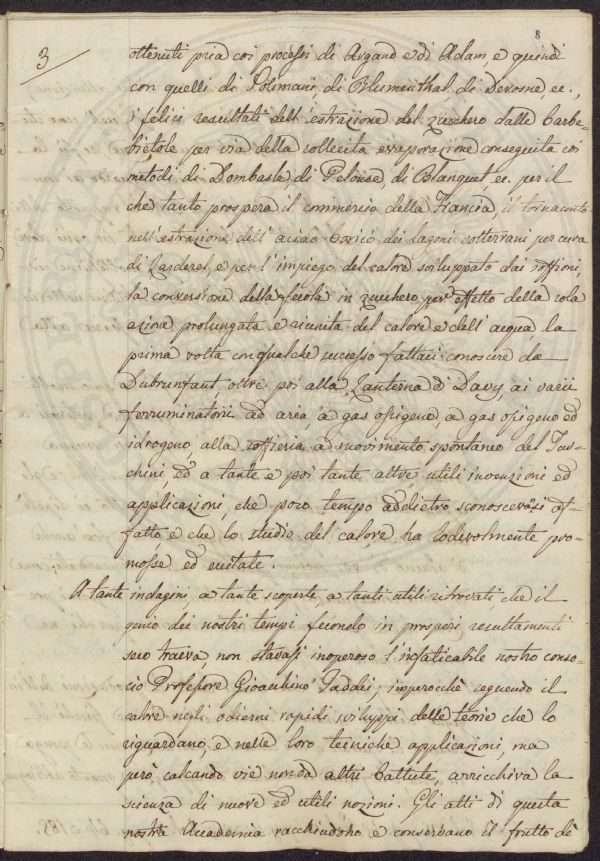 8
3
ottenuti pria coi processi di Argand e di Adam, e quindi
con quelli di Polimani, di Blumenthal di Devosne, ec.,
i felici resultati dell'estrazione del zucchero dalle barbe-
bietole per via della sollecita evaporazione conseguita coi
metodi di Dombasle, di Pelouse, di Blanquet, ec. per il
che tanto prospera il commercio della Francia, il tornaconto
nell'estrazione dell'acido borico dei lagoni volterrani per cura
di Larderel, e per l'impiego del calore sviluppato dai soffioni,
la conversione della fecola in zucchero per effetto della sola
azione prolungata e riunita del calore e dell'acqua, la
prima volta con qualche successo fattaci conoscere da
Dubrunfaut oltre poi alla Lanterna di Davy, ai varii
ferruminatorii ad aria a gas ossigeno, a gas ossigeno ed
idrogeno, alla soffieria a movimento spontaneo del Tad-
dini, ed a tante e poi tante altre utili invenzioni ed
applicazioni, che poco tempo addietro sconoscevansi af-
fatto e che lo studio del calore ha lodevolmente pro-
mosse ed eccitate.
A tante indagini, a tante scoperte, a tanti utili ritrovati, che il
genio dei nostri tempi fecondo in prosperi resultamenti
seco traeva, non stavasi inoperoso l'infaticabile nostro conso-
cio Professore Gioacchino Taddei, imperocchè seguendo il
calore negli odierni rapidi sviluppi delle teorie che lo
riguardano, e nelle loro tecniche applicazioni, ma
però calcando vie non da altri battute, arricchiva la
scienza di nuove ed utili nozioni. Gli atti di questa
nostra Accademia racchiudono e conservano il frutto di